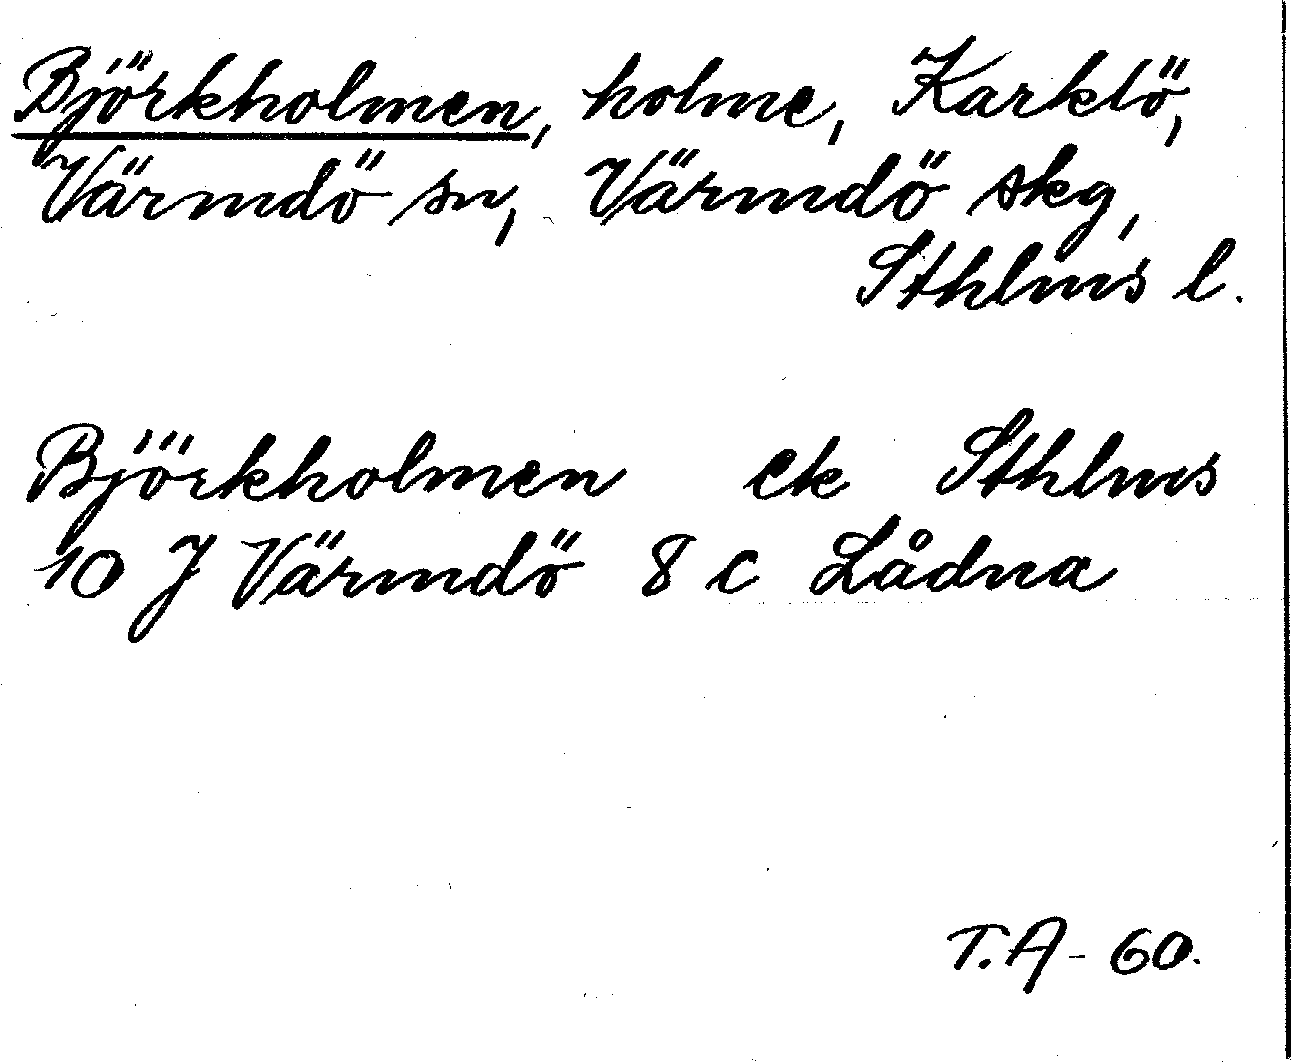 Björkholmen, holme, Karklö,
Värmdö sn, Värmdö skg,
Sthlms l.
Björkholmen ek Sthlms
10 J Värmdö 8 c Lådna
T.A - 60.